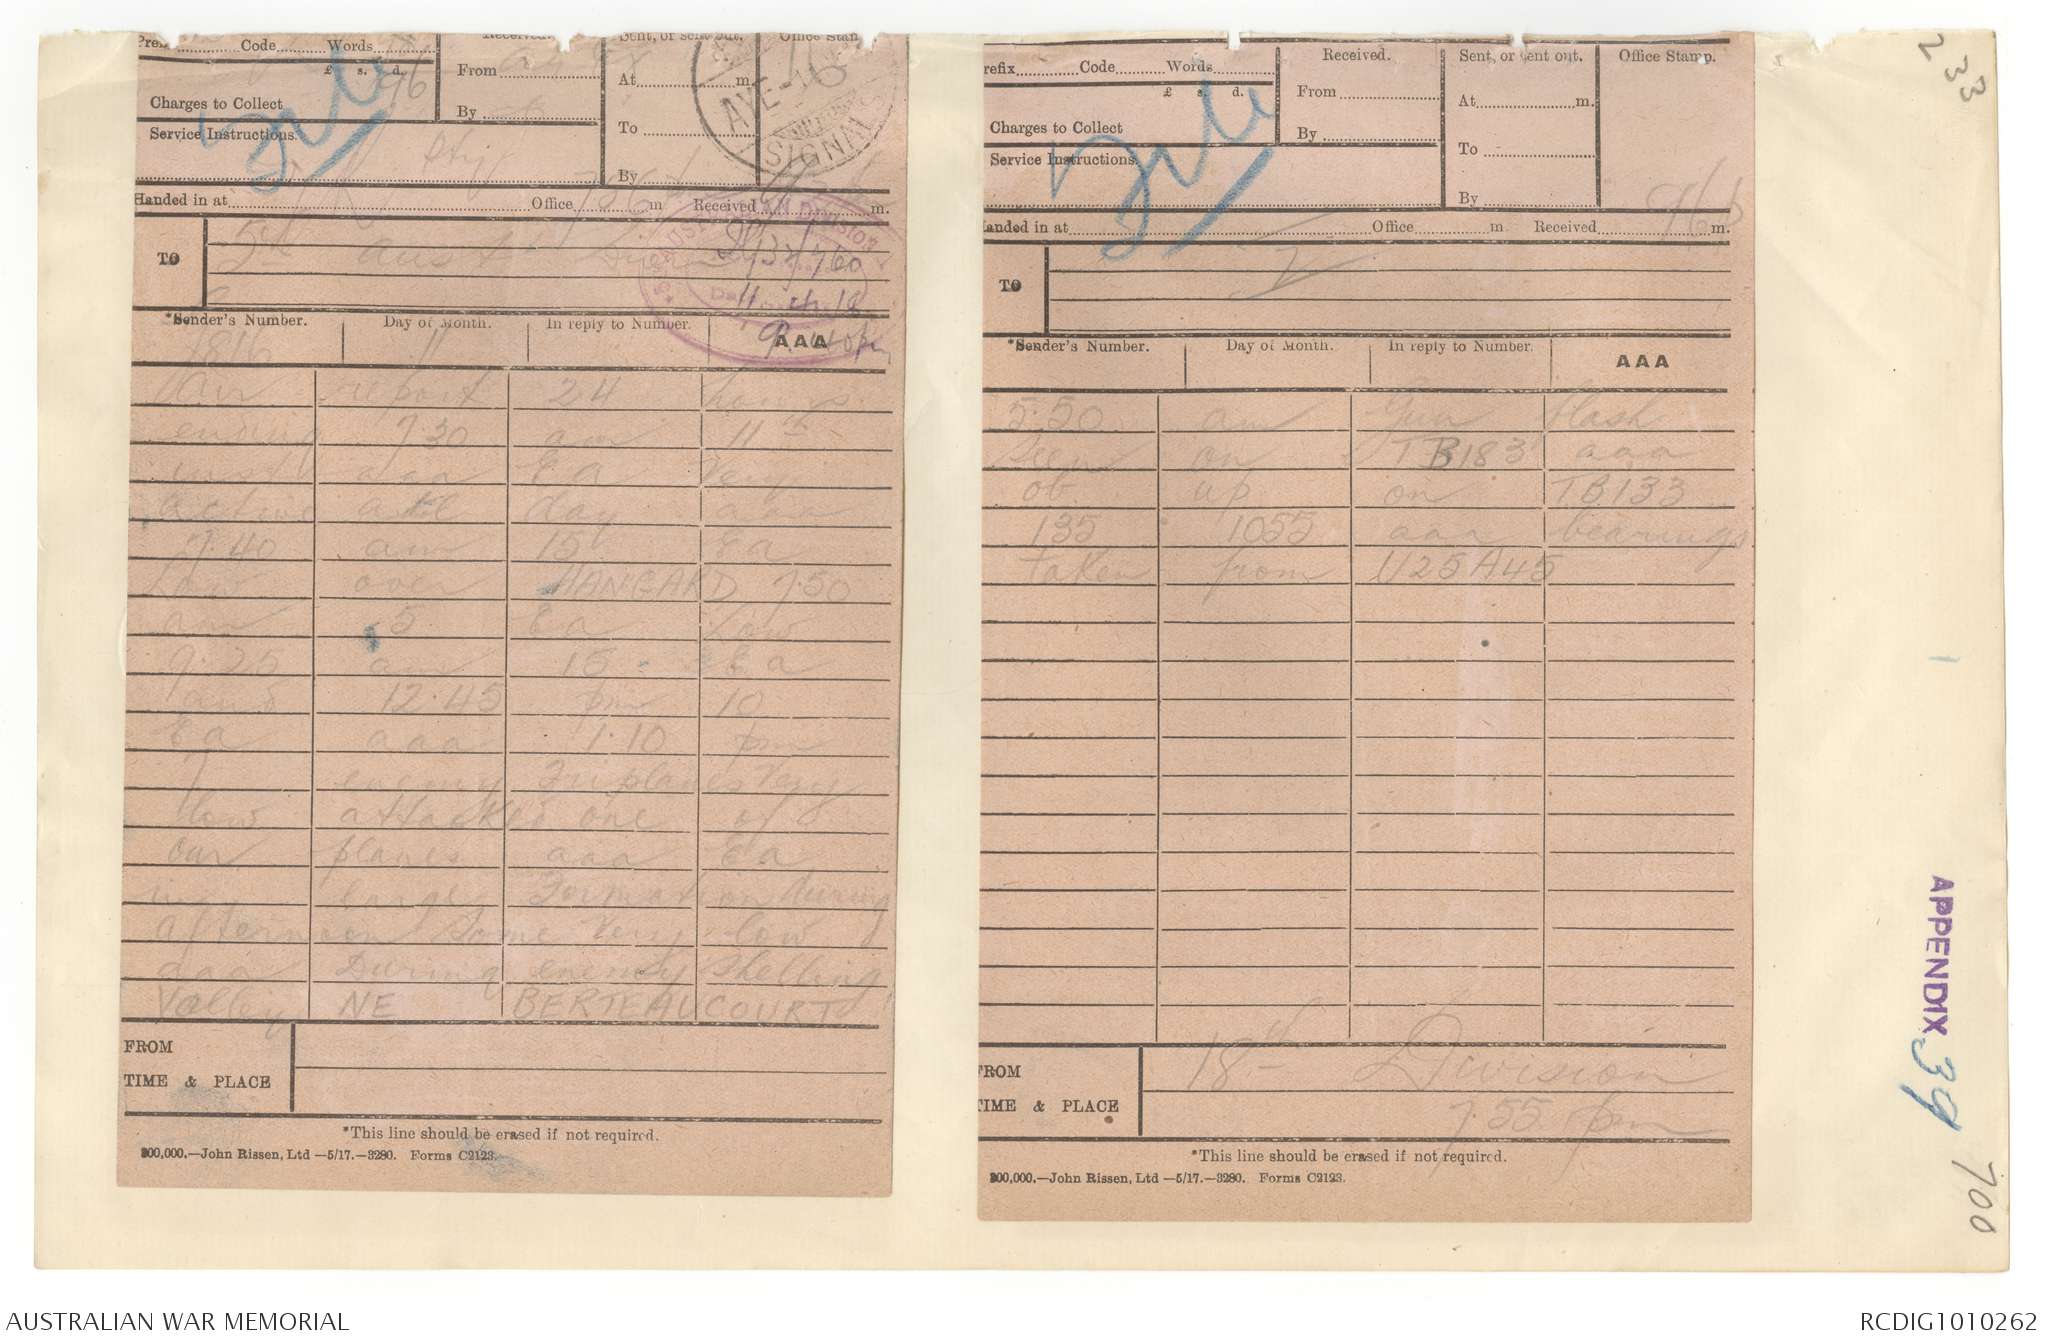 Prefix Code Words
£ s. d.
Charges to Collect
Service Instructions.
Received.
From
By
Sent, or sent out.
At m.
To
By
Office Stamp
AYE
SIGNALS
Handed in at Office m Received m.
TO
5th Aust Division
AUSTRALIAN DIVISION
9.40 pm
*Sender's Number. Day of Month. In reply to Number. AAA
11
Air report 24 hours
ending 7.30 am 11th
inst aaa Ea Very
active all day aaa
7.40 am 15 Ea
low over HANGARD 7.50
am 5 Ea low
9.25 am 15 Ea
and 12.45 pm 10
Ea aaa 1.10 pm
7 enemy Triplanes Very
low attacked one of
our planes aaa Ea
in large Formation during
afternoon Some Very low
aaa During enemy Shelling
Valley NE BERTEAUCOURT
FROM
TIME & PLACE
*This line should be erased if not required.
200,000.—John Rissen, Ltd —5/17.—3280. Forms C2123.
Prefix Code Words
£ s. d.
Charges to Collect
Service Instructions.
Received.
From
By
Sent, or sent out.
At m.
To
By
Office Stamp.
Handed in at Office m Received m.
TO
*Sender's Number. Day of Month. In reply to Number. AAA
5.50 am Gun flash
Seen on TB183 aaa
ob up on TB133
135 1055 aaa bearings
taken from U25A45
FROM
18th Division
TIME & PLACE
7.55 pm
*This line should be erased if not required.
200,000.—John Rissen, Ltd —5/17.—3280. Forms C2123.
233
APPENDIX 39
700
AUSTRALIAN WAR MEMORIAL
RCDIG1010262